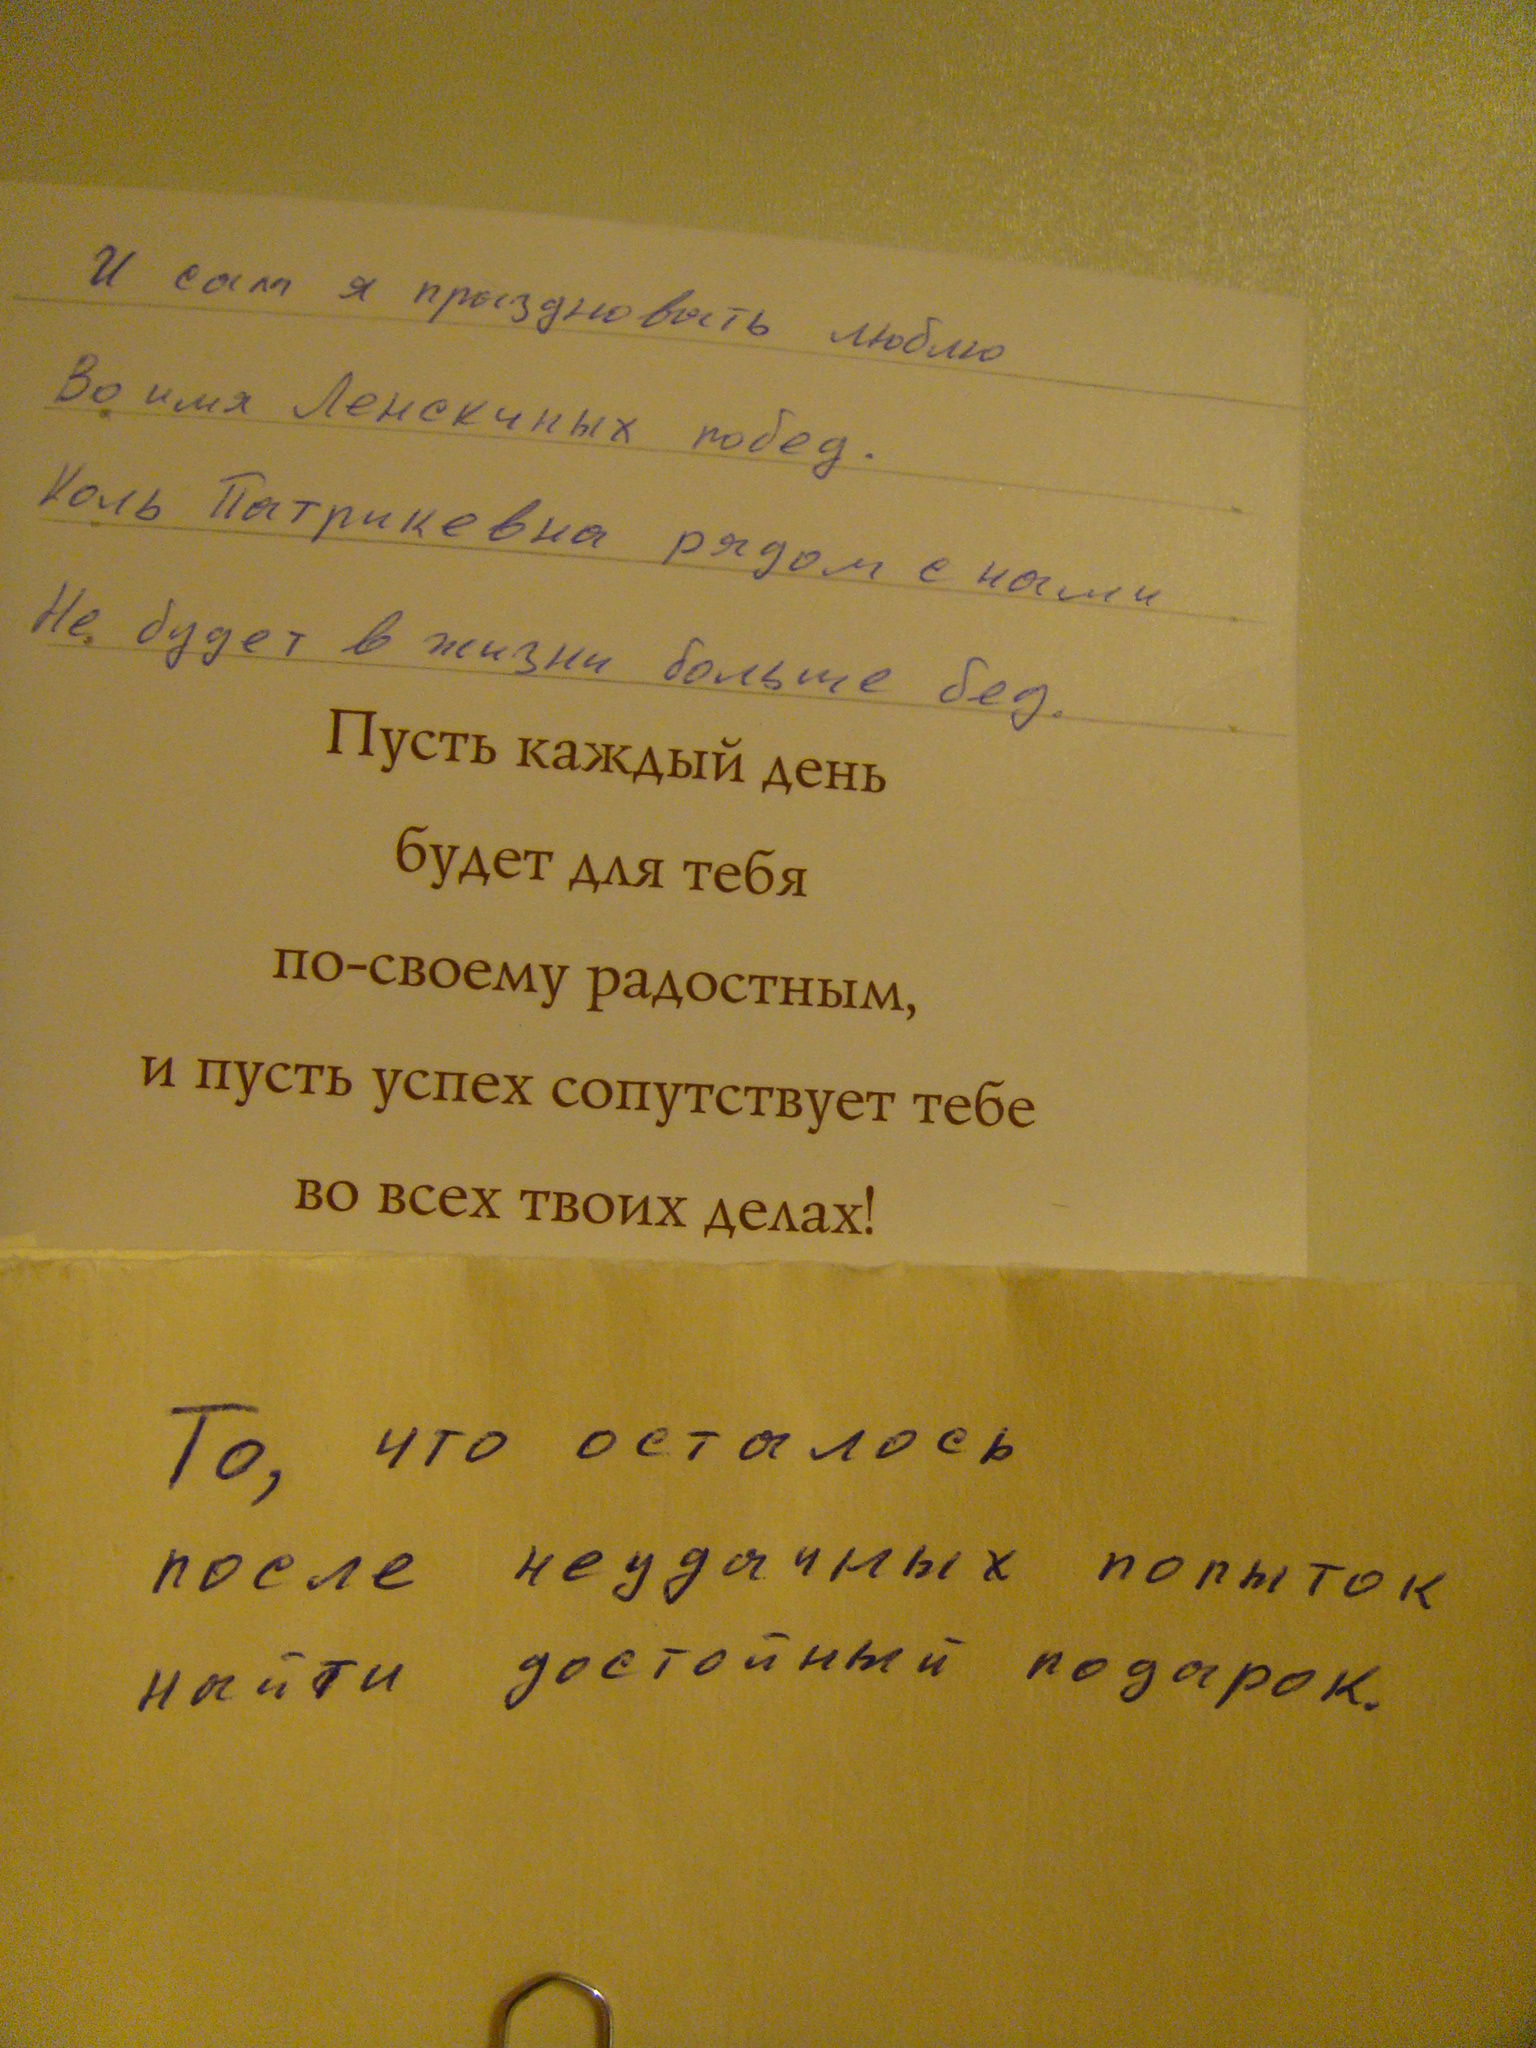 И сам я праздновать люблю
Во имя Ленскиных побед.
Коль Патрикевна рядом с нами
Не будет в жизни больше бед.
Пусть каждый день
будет для тебя
по-своему радостным,
и пусть успех сопутствует тебе
во всех твоих делах!
То, что осталось
после неудачных попыток
найти достойный подарок.